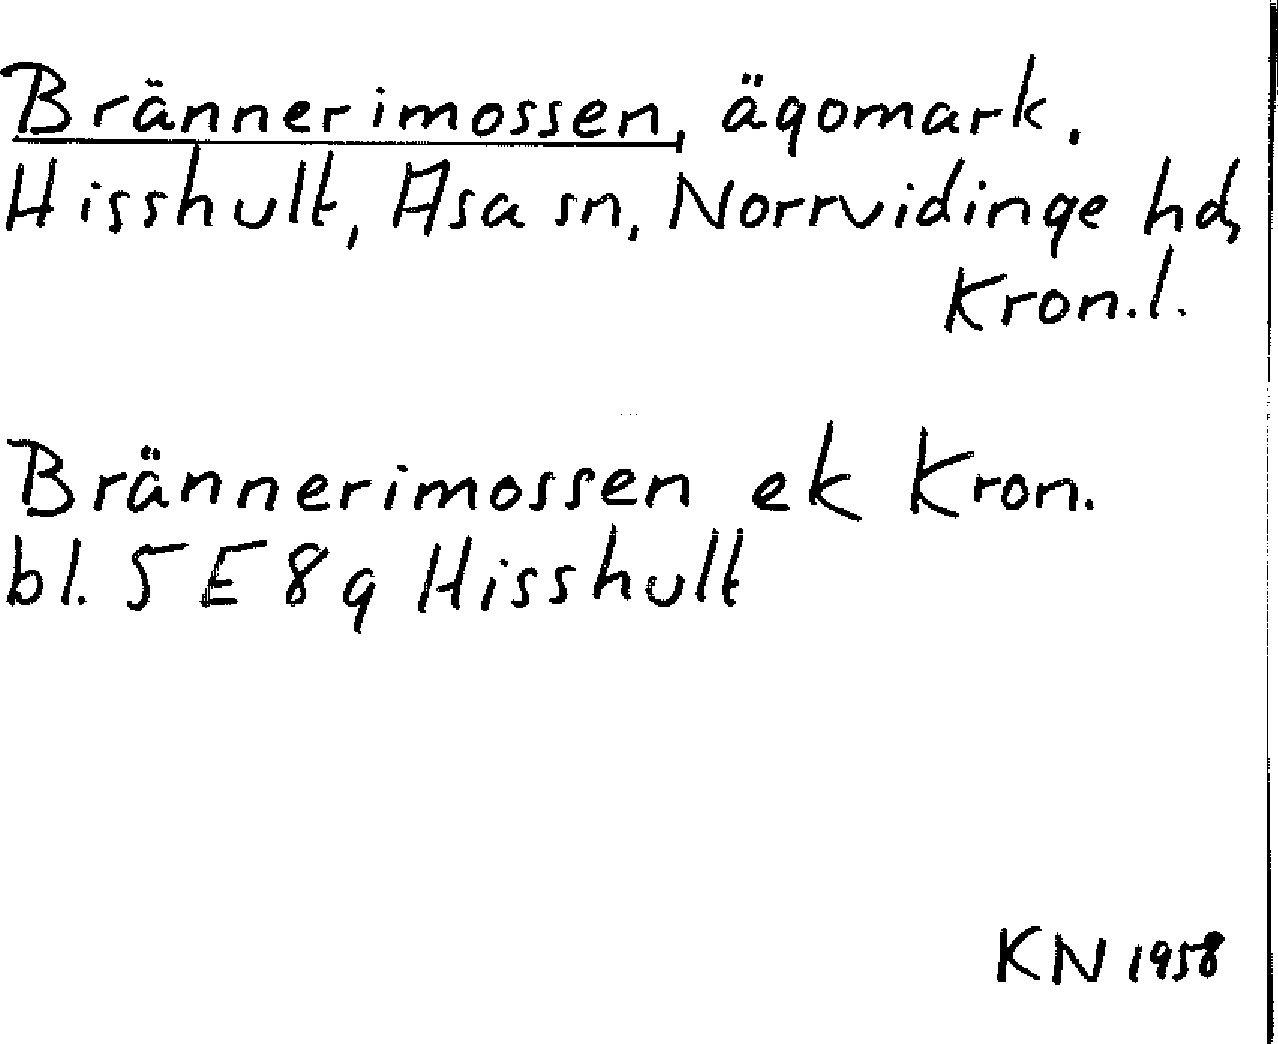 Brännerimossen, ägomark.
Hisshult, Asa sn, Norrvidinge hd,
Kron.l.
Brännerimossen ek Kron.
bl. 5 E 8 g Hisshult
KN 1958